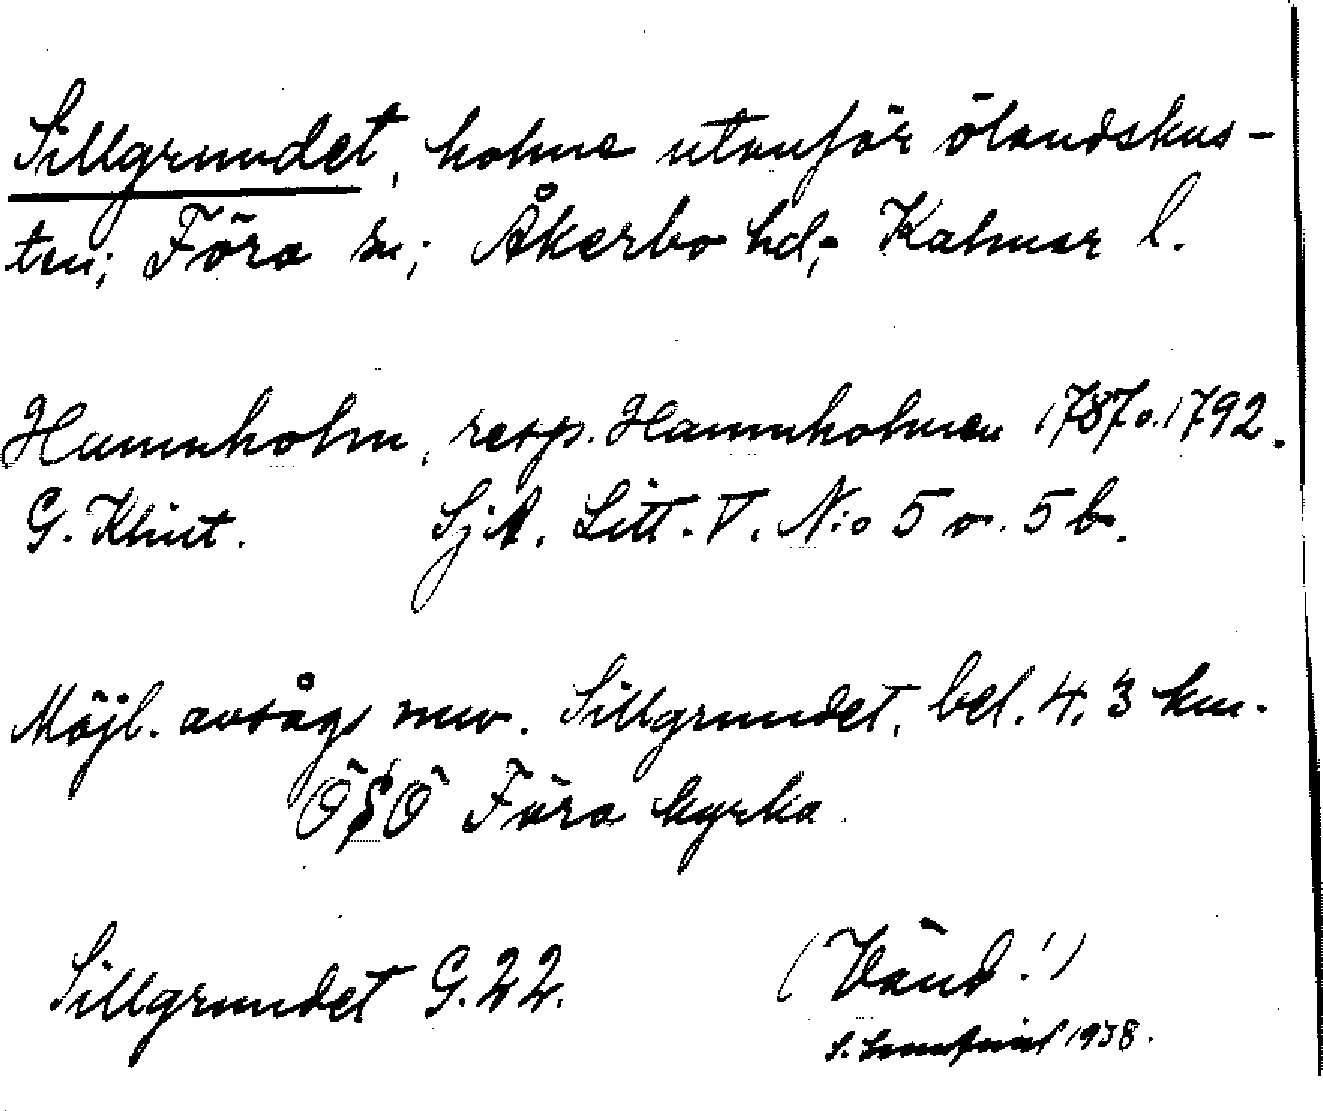 Sillgrundet, holme utanför ölandskus-
ten; Föra sn; Åkerbo hd; Kalmar l.
Hamnholm, resp. Hamnholmen 1787 o. 1792.
G. Klint. SjA. Litt. V. N:o 5 o. 5 b.
Möjl. avsågs nuv. Sillgrundet, bel. 4,3 km.
ÖSÖ Föra kyrka.
Sillgrundet G. 22. (Vänd!)
S. 1938.